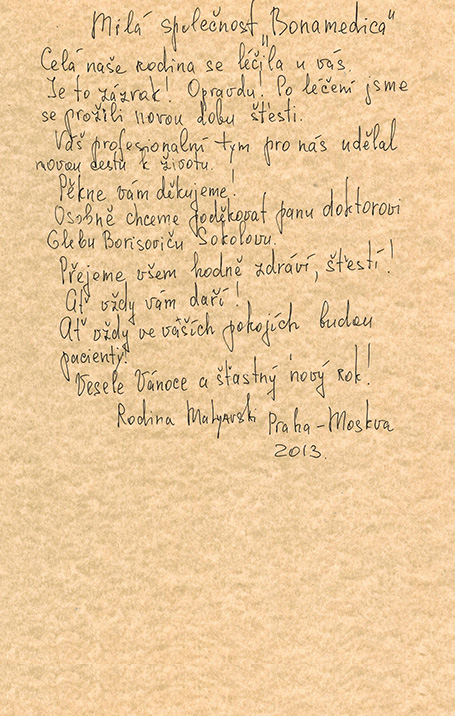 Milá společnost „Bonamedica“
Celá naše rodina se léčila u vás.
Je to zázrak! Opravdu! Po léčení jsme
se prožili novou dobu štěsti.
Váš profesionalní tym pro nás udělal
novou cestu k životu.
Pěkne vám děkujeme!
Osobně chceme poděkovat panu doktorovi
Glebu Borisoviču Sokolovu.
Přejeme všem hodně zdráví, štěstí!
Ať vždy vám daří!
Ať vždy ve vášich pokojích budou
pacienty!
Vesele Vánoce a štastný nový rok!
Rodina Praha-Moskva
2013.